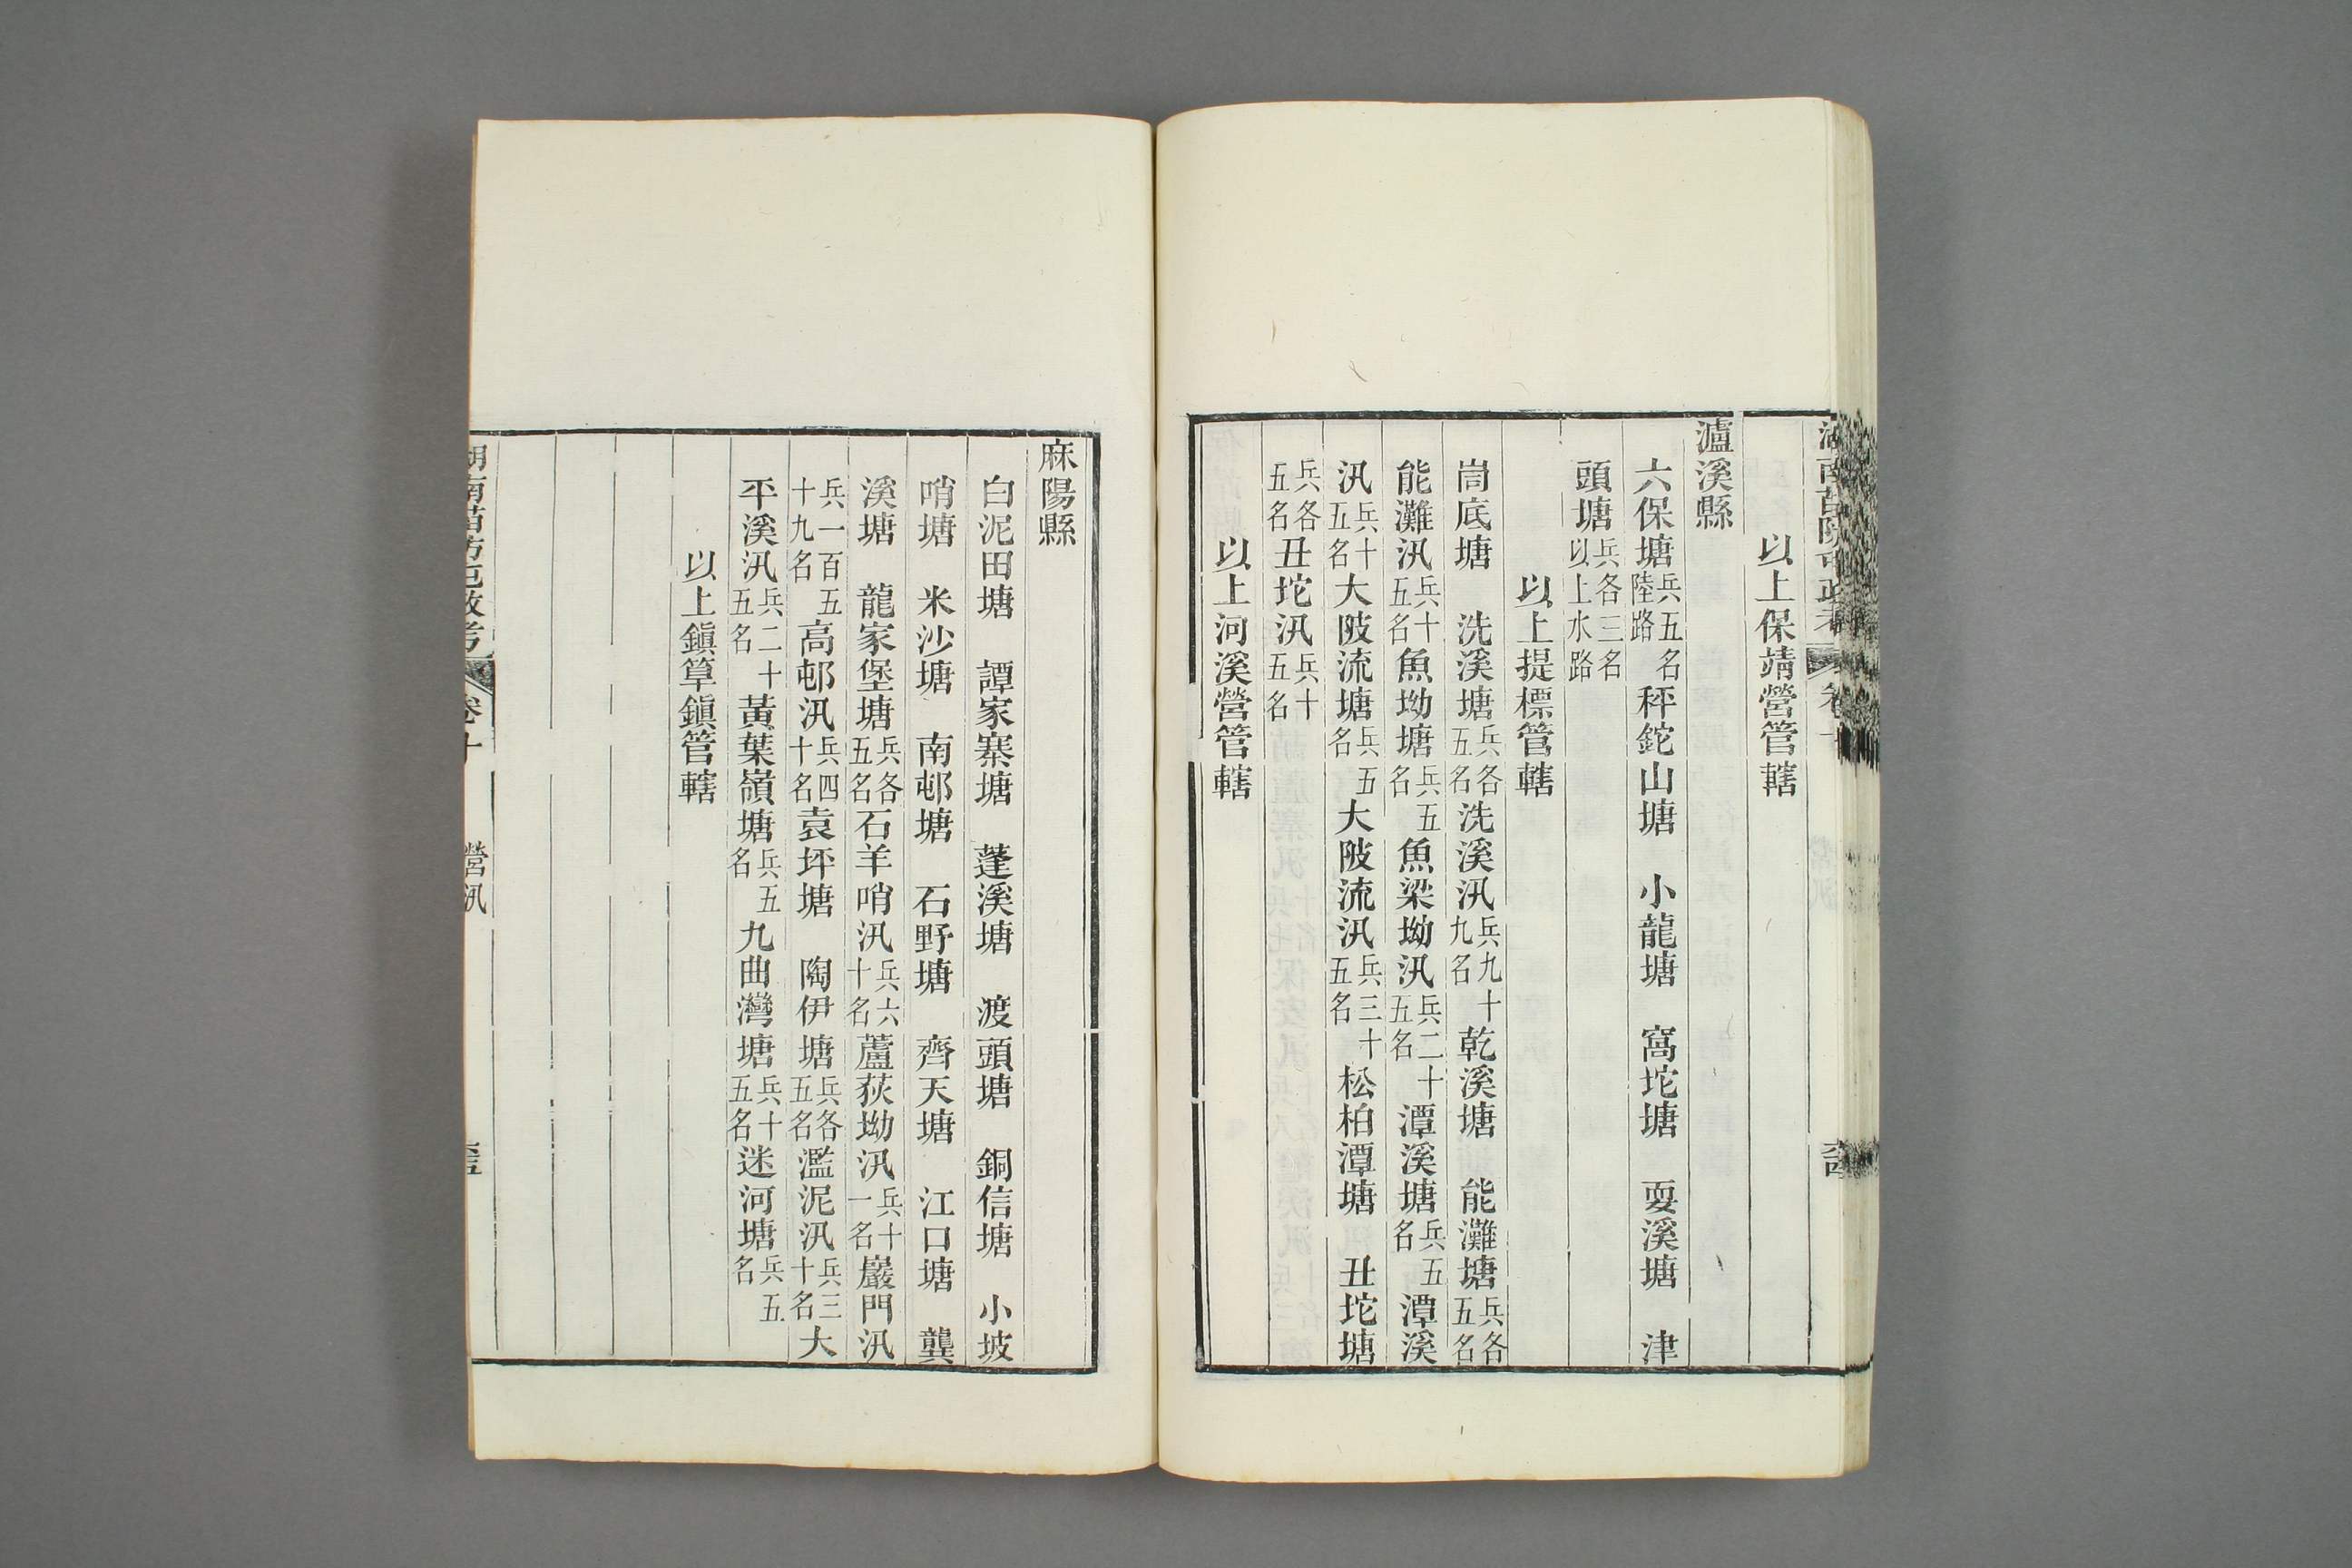 湖南苗防屯政考 卷十
以上保靖營管轄
瀘溪縣
六保塘兵五名陸路秤鉈山塘 小龍塘 窩坨塘 耍溪塘 津
頭塘兵各三名以上水路
以上提標管轄
峝底塘 洗溪塘兵各五名洗溪汛兵九十九名乾溪塘 能灘塘兵各五名
能灘汛兵十五名魚坳塘兵五名魚梁坳汛兵二十五名潭溪塘兵五名潭溪
汛兵十五名大陂流塘兵五名大陂流汛兵三十五名松柏潭塘 丑坨塘
兵各五名丑坨汛兵十五名
以上河溪營管轄
麻陽縣
白泥田塘 譚家寨塘 蓬溪塘 渡頭塘 銅信塘 小坡
哨塘 米沙塘 南邨塘 石野塘 齊天塘 江口塘 龔
溪塘 龍家堡塘兵各五名石羊哨汛兵六十名蘆荻坳汛兵十一名巖門汛
兵一百五十九名高邨汛兵四十名袁坪塘 陶伊塘兵各五名濫泥汛兵三十名大
平溪汛兵二十五名黃葉嶺塘兵五名九曲灣塘兵十五名迷河塘兵五名
以上鎮筸鎮管轄
湖南苗防屯政考 卷十 營汛